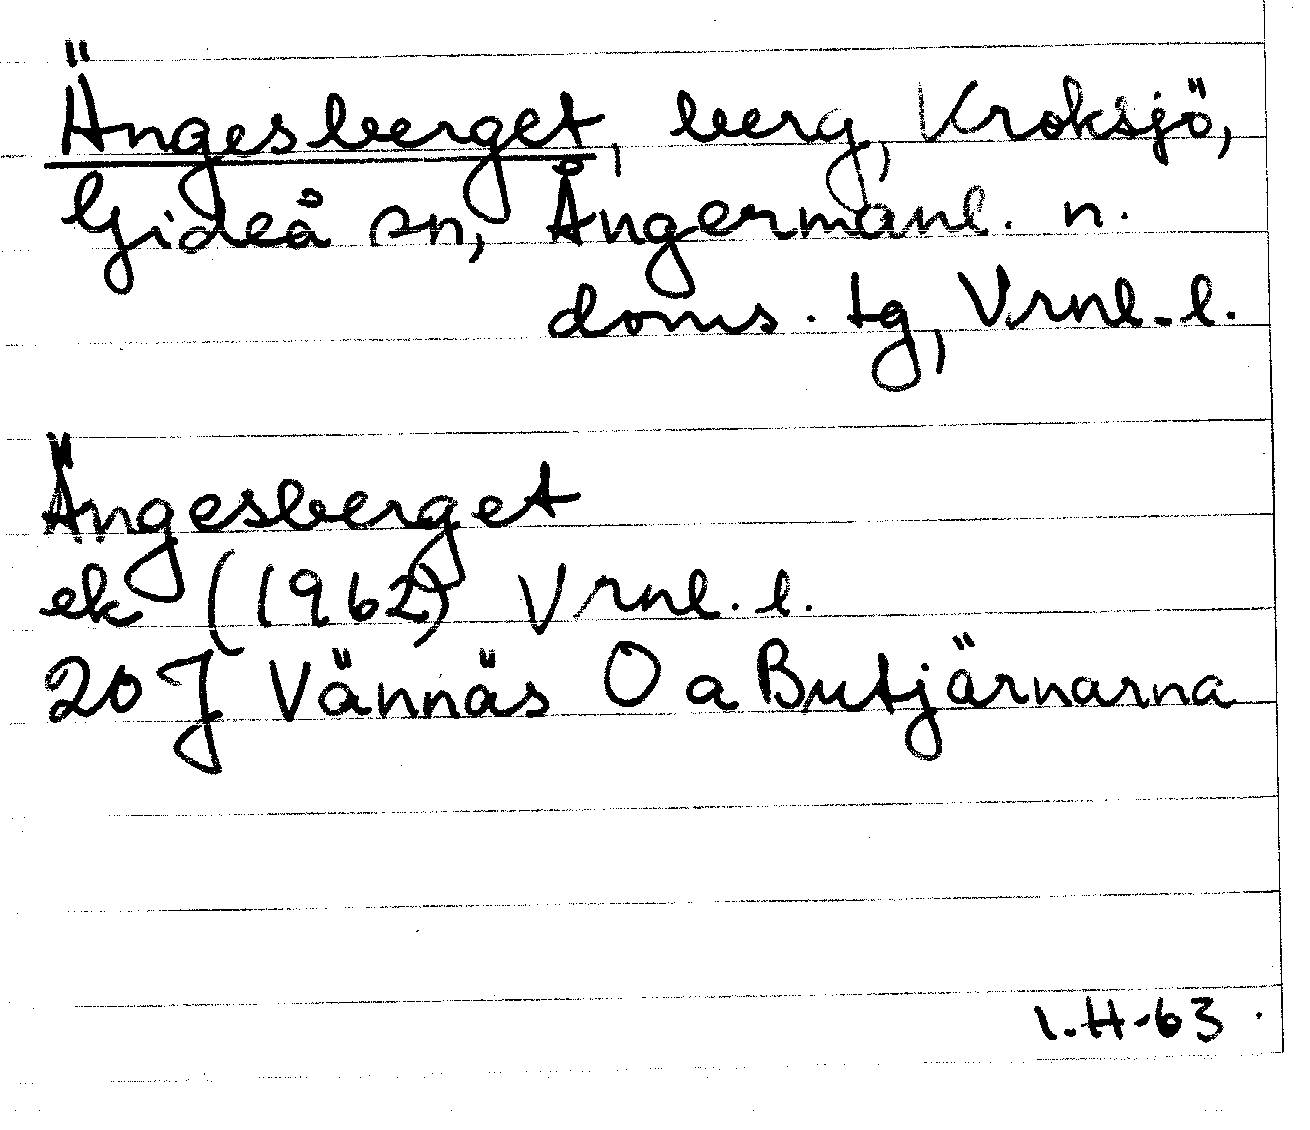 Ängesberget, berg, Kroksjö,
Gideå sn, Ångermanl. n.
doms. tg, Vrnl. l.
Ängesberget
ek (1962) Vrnl. l.
20 J Vännäs O a Butjärnarna
I.H-63